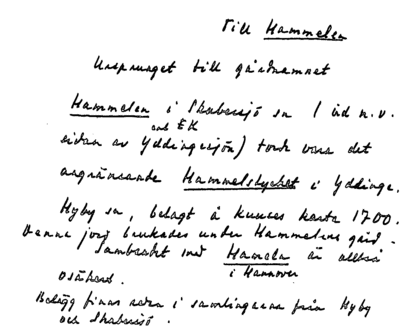 Till Hammelen
Ursprunget till gårdnamnet
Hammelen i Skabersjö sn (vid n.v.
enl EK
sidan av Yddingesjön) torde vara det
angränsande Hammelstycket i Yddinge,
Hyby sn, belagt å Kuuces karta 1700.
Denna jord brukades under Hammelens gård.
Sambandet med Hameln är alltså
i Hannover
osäkert.
Belägg finns redan i samlingarna från Hyby
och Skabersjö.